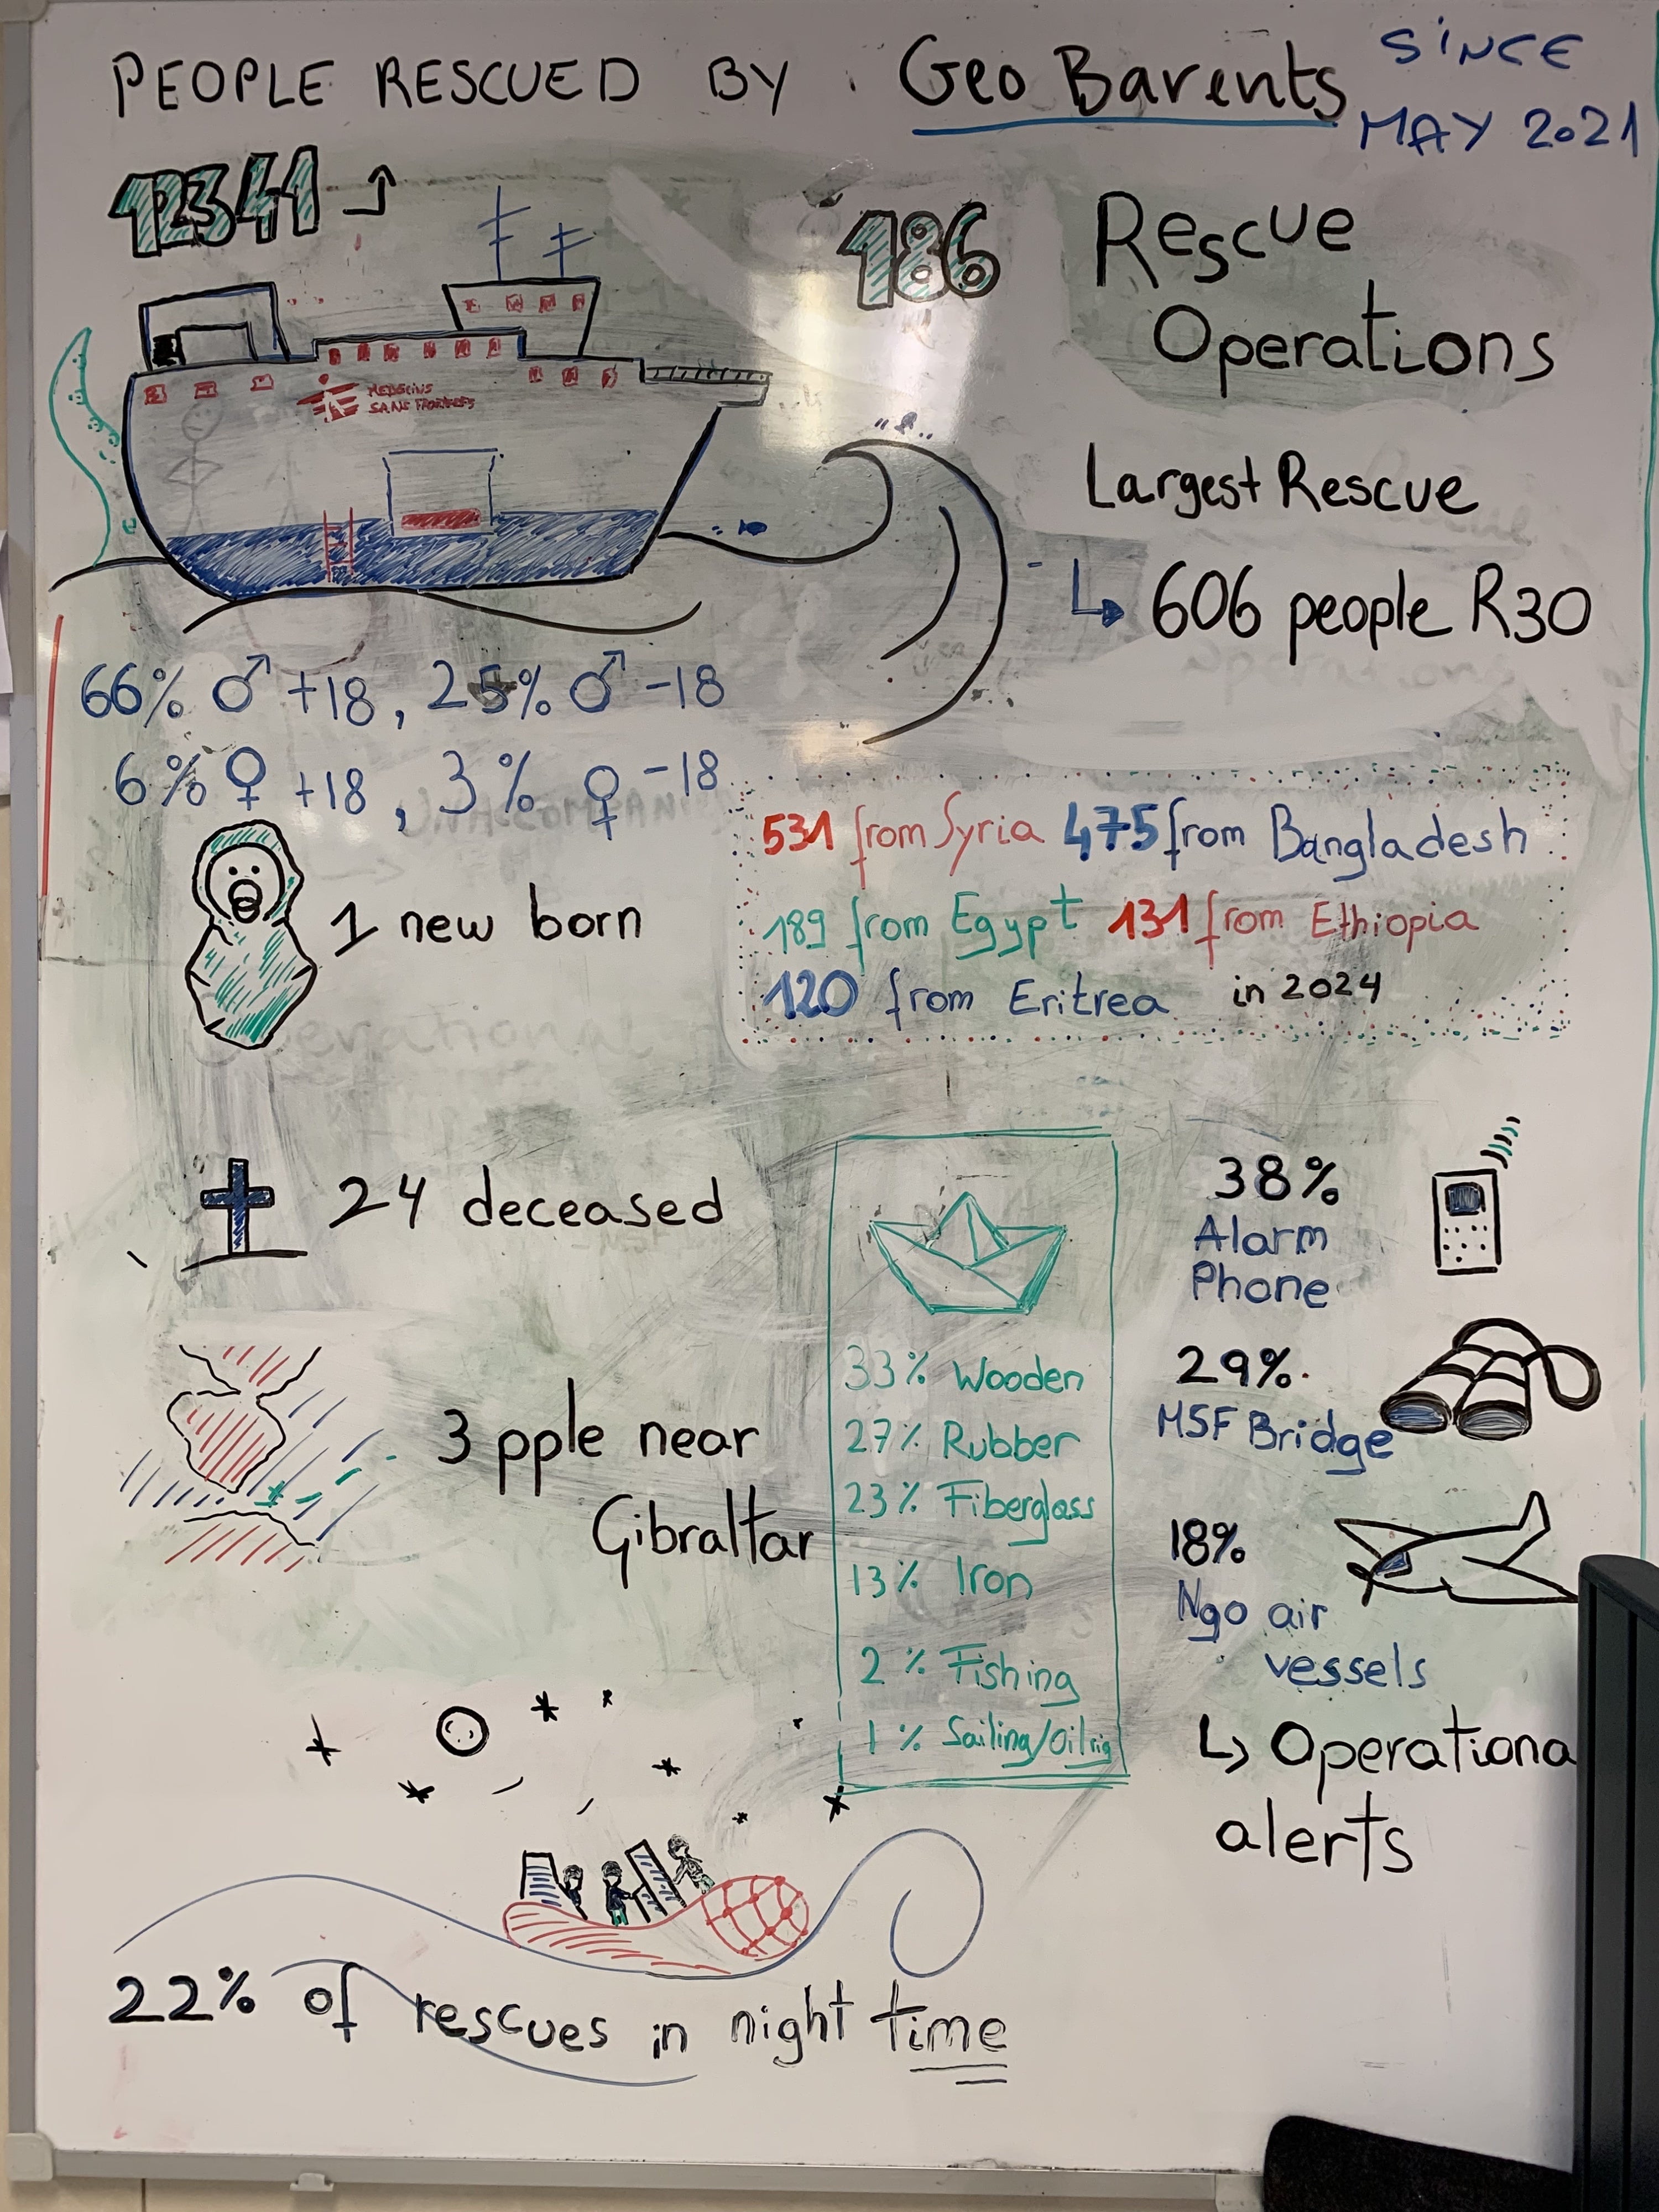 PEOPLE RESCUED BY : Geo Barents SINCE MAY 2021
12341
186 Rescue
Operations
MEDECINS
SANS FRONTIERES
Largest Rescue
606 people R30
66% ♂ +18, 25% ♂ -18
6% ♀ +18, 3% ♀ -18
531 from Syria 475 from Bangladesh
189 from Egypt 131 from Ethiopia
120 from Eritrea in 2024
1 new born
24 deceased
3 pple near
Gibraltar
33% Wooden
27% Rubber
23% Fiberglass
13% Iron
2% Fishing
1% Sailing/Oilrig
38%
Alarm
Phone
29%
MSF Bridge
18%
Ngo air
vessels
↳ Operationa
alerts
22% of rescues in night time